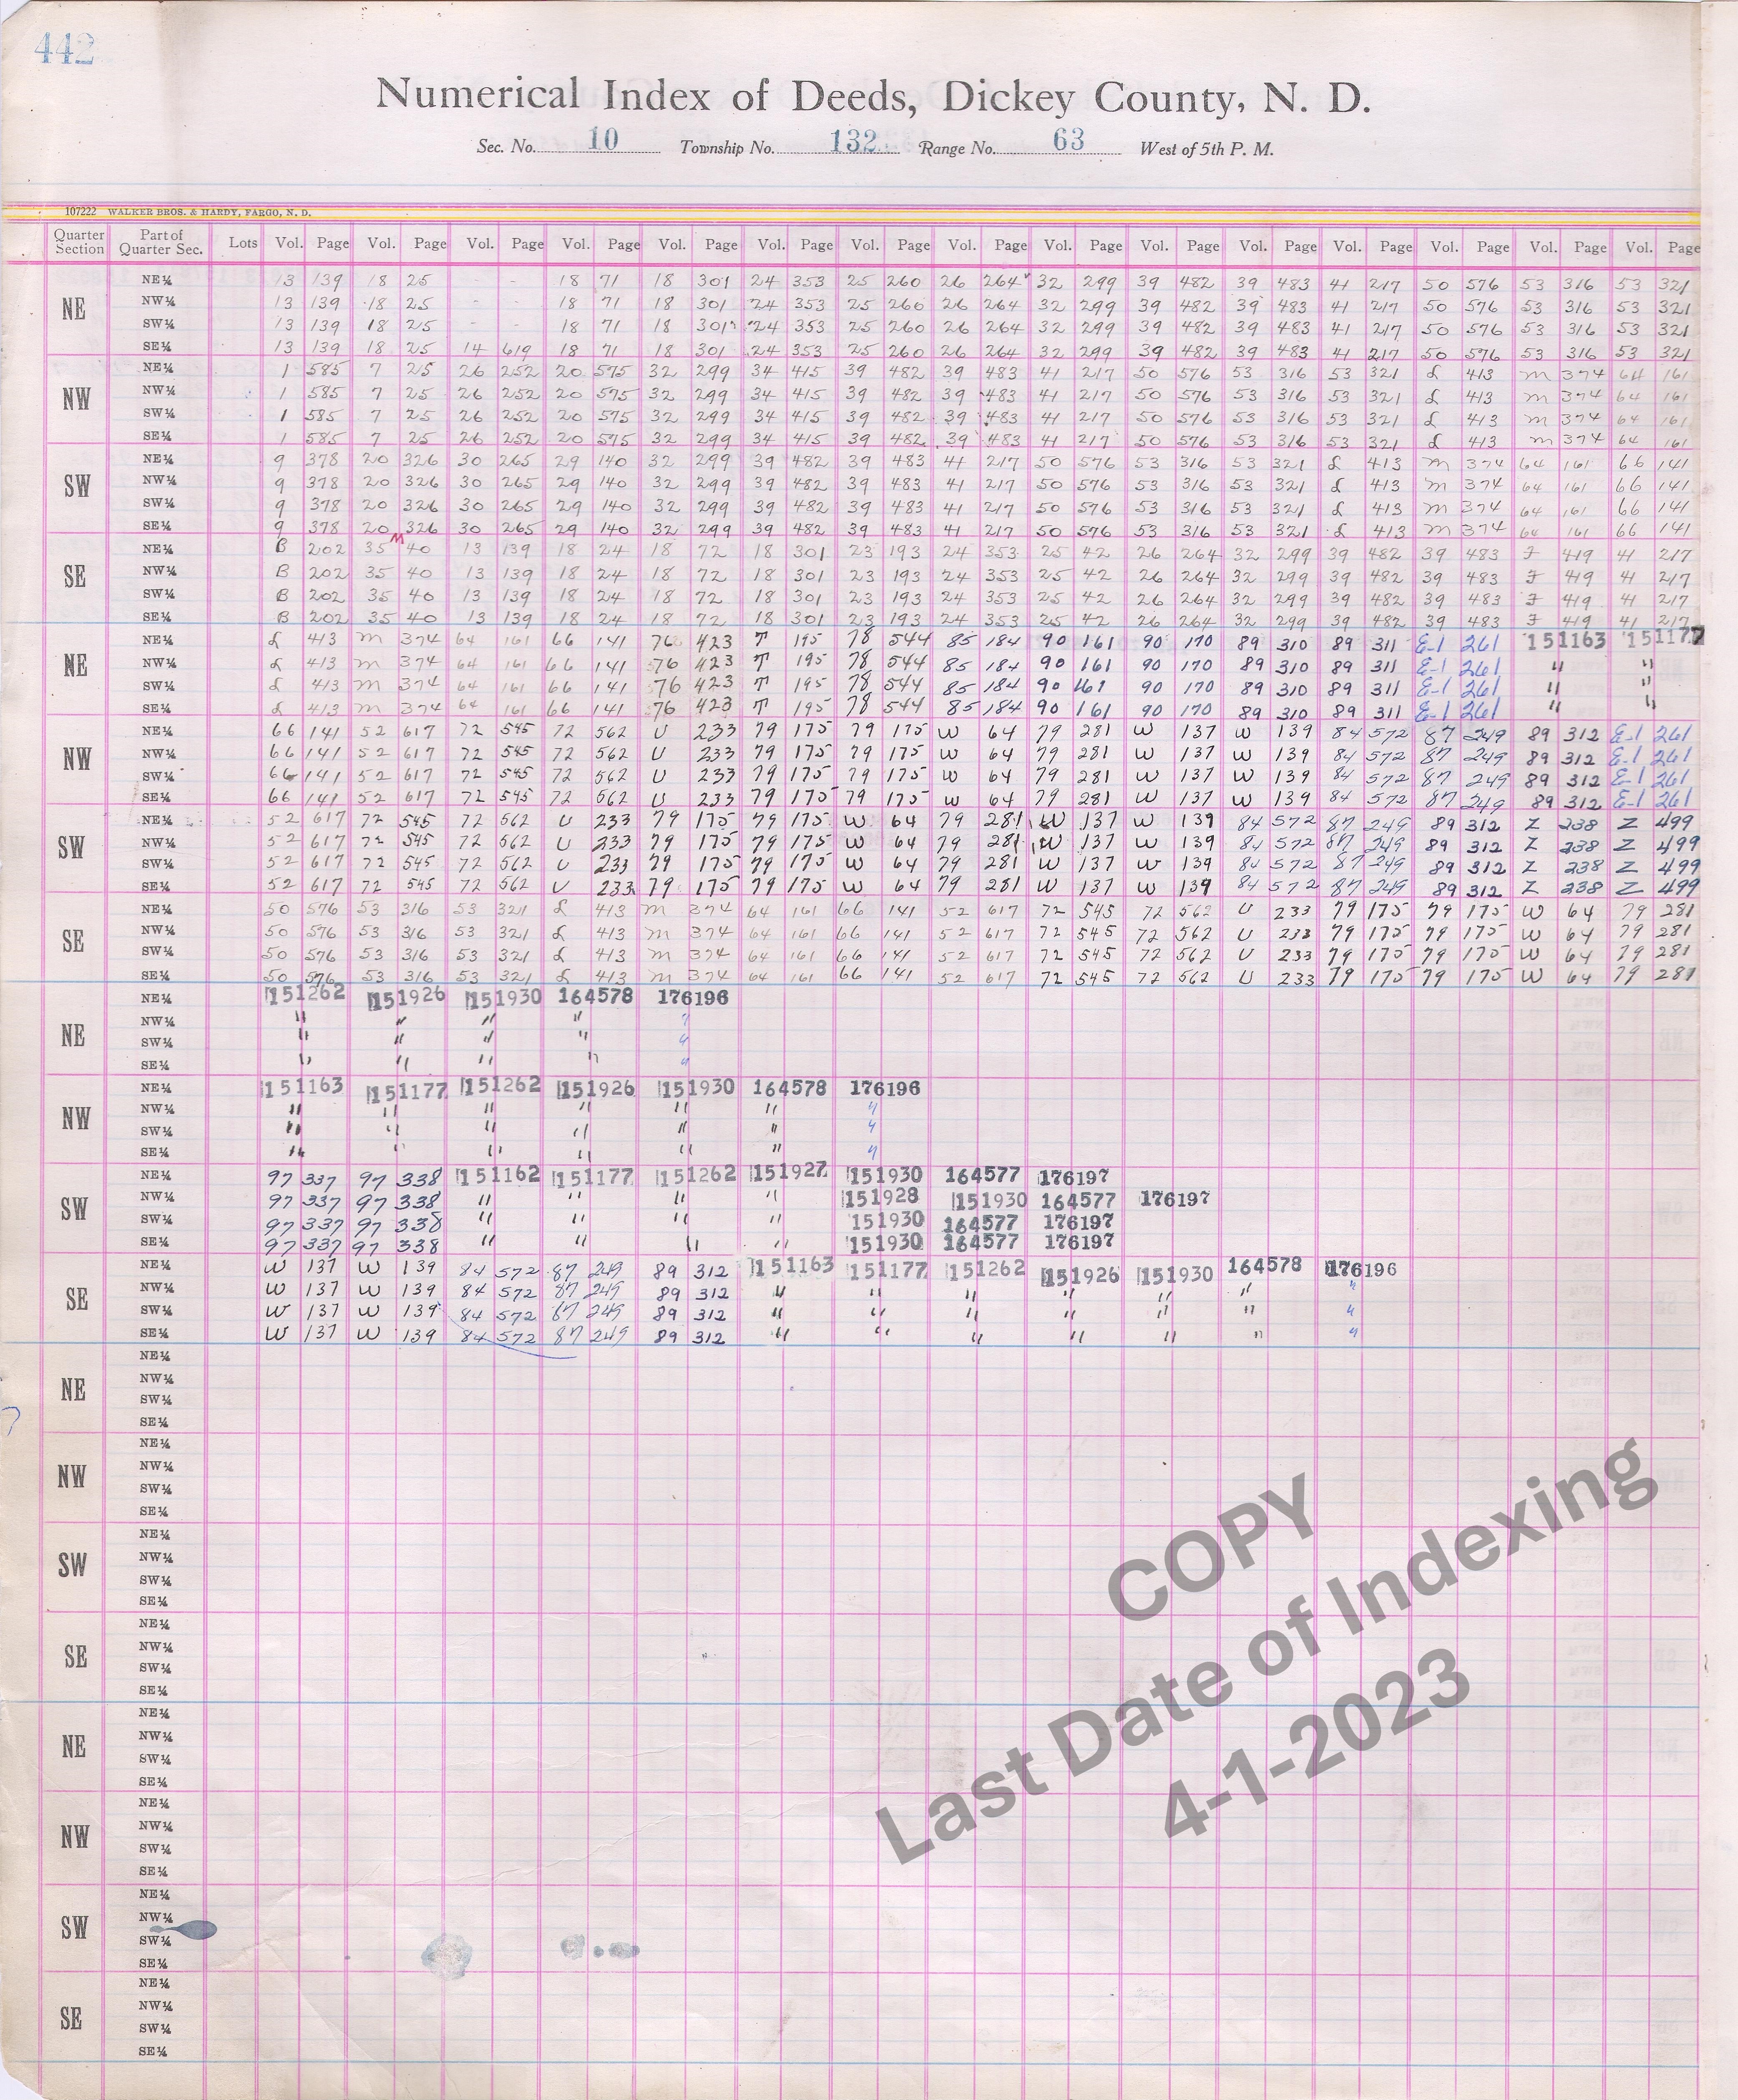 442
Numerical Index of Deeds, Dickey County, N. D.
Sec. No. 10 Township No. 132 Range No. 63 West of 5th P. M.
107222 WALKER BROS. & HARDY, FARGO, N. D.
Quarter Section Part of Quarter Sec. Lots Vol. Page Vol. Page Vol. Page Vol. Page Vol. Page Vol. Page Vol. Page Vol. Page Vol. Page Vol. Page Vol. Page Vol. Page Vol. Page Vol. Page Vol. Page
NE NE¼ 13 139 18 25 - - 18 71 18 301 24 353 25 260 26 264 32 299 39 482 39 483 41 217 50 576 53 316 53 321
NW¼ 13 139 18 25 - - 18 71 18 301 24 353 25 260 26 264 32 299 39 482 39 483 41 217 50 576 53 316 53 321
SW¼ 13 139 18 25 - - 18 71 18 301 24 353 25 260 26 264 32 299 39 482 39 483 41 217 50 576 53 316 53 321
SE¼ 13 139 18 25 14 619 18 71 18 301 24 353 25 260 26 264 32 299 39 482 39 483 41 217 50 576 53 316 53 321
NW NE¼ 1 585 7 25 26 252 20 575 32 299 34 415 39 482 39 483 41 217 50 576 53 316 53 321 L 413 M 374 64 161
NW¼ 1 585 7 25 26 252 20 575 32 299 34 415 39 482 39 483 41 217 50 576 53 316 53 321 L 413 M 374 64 161
SW¼ 1 585 7 25 26 252 20 575 32 299 34 415 39 482 39 483 41 217 50 576 53 316 53 321 L 413 M 374 64 161
SE¼ 1 585 7 25 26 252 20 575 32 299 34 415 39 482 39 483 41 217 50 576 53 316 53 321 L 413 M 374 64 161
SW NE¼ 9 378 20 326 30 265 29 140 32 299 39 482 39 483 41 217 50 576 53 316 53 321 L 413 M 374 64 161 66 141
NW¼ 9 378 20 326 30 265 29 140 32 299 39 482 39 483 41 217 50 576 53 316 53 321 L 413 M 374 64 161 66 141
SW¼ 9 378 20 326 30 265 29 140 32 299 39 482 39 483 41 217 50 576 53 316 53 321 L 413 M 374 64 161 66 141
SE¼ 9 378 20 326 30 265 29 140 32 299 39 482 39 483 41 217 50 576 53 316 53 321 L 413 M 374 64 161 66 141
M
SE NE¼ B 202 35 40 13 139 18 24 18 72 18 301 23 193 24 353 25 42 26 264 32 299 39 482 39 483 J 419 41 217
NW¼ B 202 35 40 13 139 18 24 18 72 18 301 23 193 24 353 25 42 26 264 32 299 39 482 39 483 J 419 41 217
SW¼ B 202 35 40 13 139 18 24 18 72 18 301 23 193 24 353 25 42 26 264 32 299 39 482 39 483 J 419 41 217
SE¼ B 202 35 40 13 139 18 24 18 72 18 301 23 193 24 353 25 42 26 264 32 299 39 482 39 483 J 419 41 217
NE NE¼ L 413 M 374 64 161 66 141 76 423 T 195 78 544 85 184 90 161 90 170 89 310 89 311 E-1 261 151163 151177
NW¼ L 413 M 374 64 161 66 141 76 423 T 195 78 544 85 184 90 161 90 170 89 310 89 311 E-1 261 " "
SW¼ L 413 M 374 64 161 66 141 76 423 T 195 78 544 85 184 90 161 90 170 89 310 89 311 E-1 261 " "
SE¼ L 413 M 374 64 161 66 141 76 423 T 195 78 544 85 184 90 161 90 170 89 310 89 311 E-1 261 " "
NW NE¼ 66 141 52 617 72 545 72 562 U 233 79 175 79 175 W 64 79 281 W 137 W 139 84 572 87 249 89 312 E-1 261
NW¼ 66 141 52 617 72 545 72 562 U 233 79 175 79 175 W 64 79 281 W 137 W 139 84 572 87 249 89 312 E-1 261
SW¼ 66 141 52 617 72 545 72 562 U 233 79 175 79 175 W 64 79 281 W 137 W 139 84 572 87 249 89 312 E-1 261
SE¼ 66 141 52 617 72 545 72 562 U 233 79 175 79 175 W 64 79 281 W 137 W 139 84 572 87 249 89 312 E-1 261
SW NE¼ 52 617 72 545 72 562 U 233 79 175 79 175 W 64 79 281 W 137 W 139 84 572 87 249 89 312 Z 238 Z 499
NW¼ 52 617 72 545 72 562 U 233 79 175 79 175 W 64 79 281 W 137 W 139 84 572 87 249 89 312 Z 238 Z 499
SW¼ 52 617 72 545 72 562 U 233 79 175 79 175 W 64 79 281 W 137 W 139 84 572 87 249 89 312 Z 238 Z 499
SE¼ 52 617 72 545 72 562 U 233 79 175 79 175 W 64 79 281 W 137 W 139 84 572 87 249 89 312 Z 238 Z 499
SE NE¼ 50 576 53 316 53 321 L 413 M 374 64 161 66 141 52 617 72 545 72 562 U 233 79 175 79 175 W 64 79 281
NW¼ 50 576 53 316 53 321 L 413 M 374 64 161 66 141 52 617 72 545 72 562 U 233 79 175 79 175 W 64 79 281
SW¼ 50 576 53 316 53 321 L 413 M 374 64 161 66 141 52 617 72 545 72 562 U 233 79 175 79 175 W 64 79 281
SE¼ 50 576 53 316 53 321 L 413 M 374 64 161 66 141 52 617 72 545 72 562 U 233 79 175 79 175 W 64 79 281
NE NE¼ 151262 151926 151930 164578 176196
NW¼ " " " " "
SW¼ " " " " "
SE¼ " " " " "
NW NE¼ 151163 151177 151262 151926 151930 164578 176196
NW¼ " " " " " " "
SW¼ " " " " " " "
SE¼ " " " " " " "
SW NE¼ 97 337 97 338 151162 151177 151262 151927 151930 164577 176197
NW¼ 97 337 97 338 " " " " 151928 151930 164577 176197
SW¼ 97 337 97 338 " " " " 151930 164577 176197
SE¼ 97 337 97 338 " " " " 151930 164577 176197
SE NE¼ W 137 W 139 84 572 87 249 89 312 151163 151177 151262 151926 151930 164578 176196
NW¼ W 137 W 139 84 572 87 249 89 312 " " " " " " "
SW¼ W 137 W 139 84 572 87 249 89 312 " " " " " " "
SE¼ W 137 W 139 84 572 87 249 89 312 " " " " " " "
NE NE¼
NW¼
SW¼
SE¼
NW NE¼
NW¼
SW¼
SE¼
SW NE¼
NW¼
SW¼
SE¼
SE NE¼
NW¼
SW¼
SE¼
NE NE¼
NW¼
SW¼
SE¼
NW NE¼
NW¼
SW¼
SE¼
SW NE¼
NW¼
SW¼
SE¼
SE NE¼
NW¼
SW¼
SE¼
COPY
Last Date of Indexing
4-1-2023